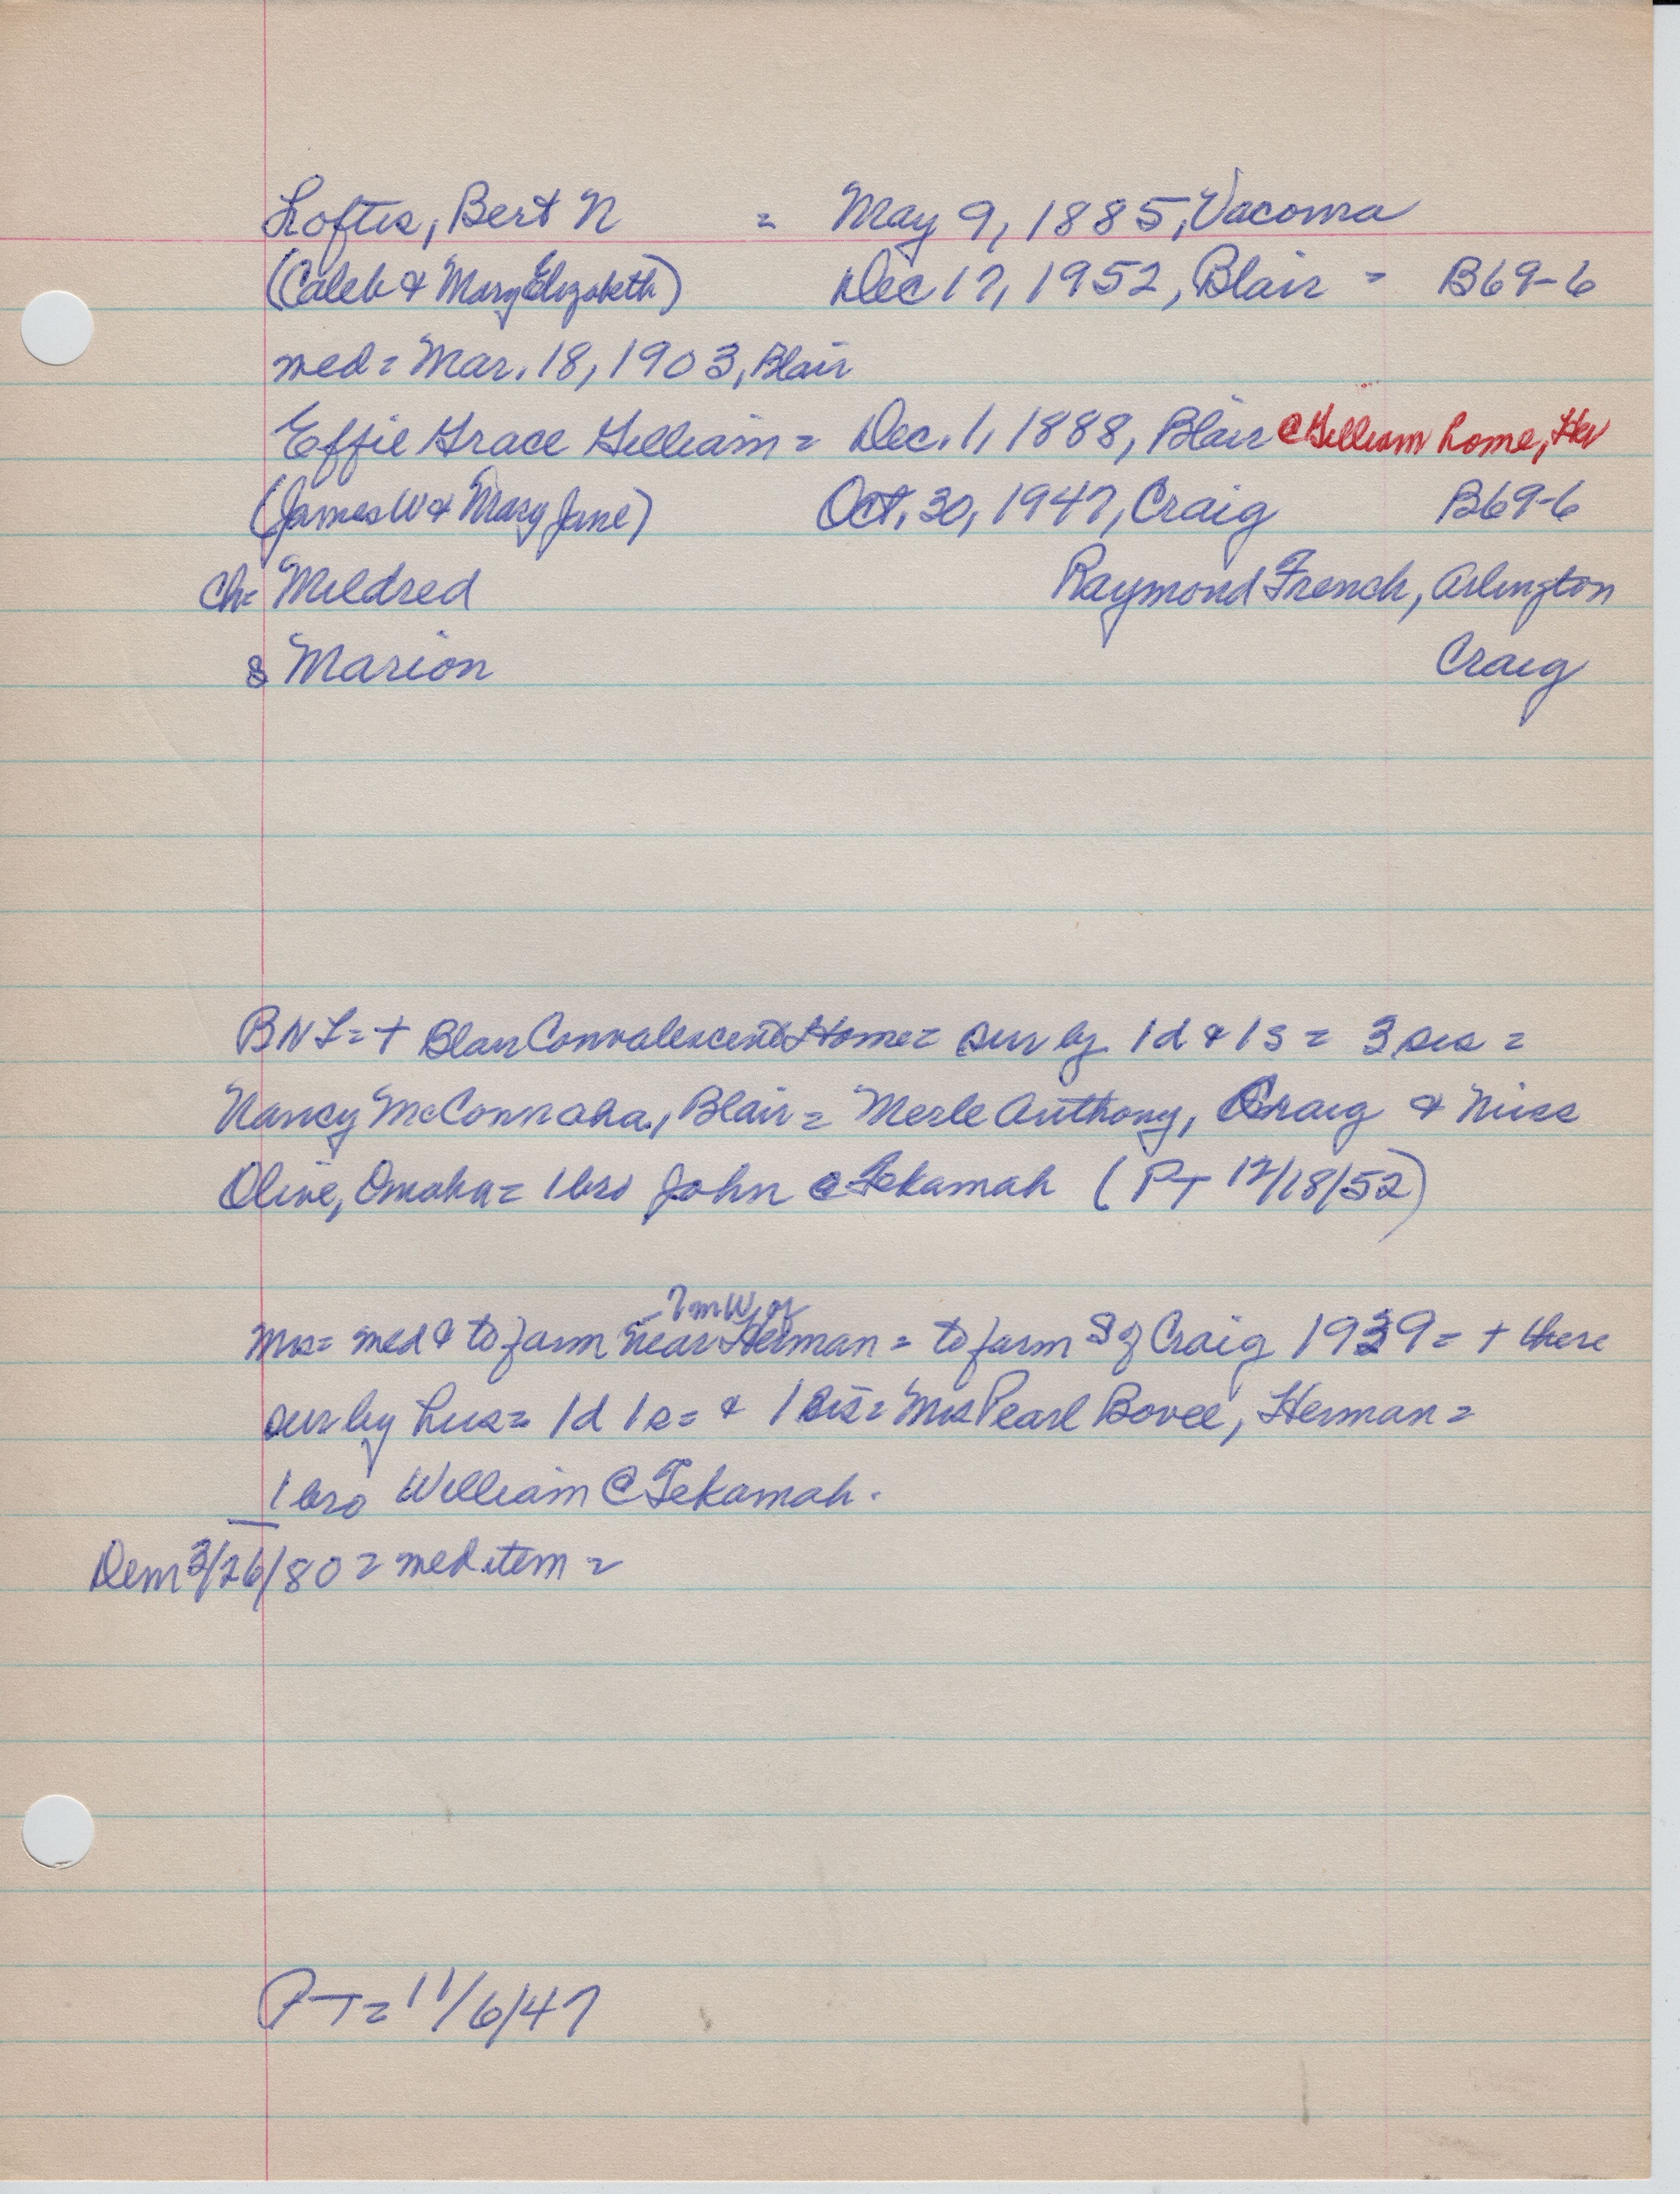 Loftis, Bert N = May 9, 1885, Vacoma
(Caleb & Mary Elizabeth) Dec 17, 1952, Blair = B69-6
med = Mar. 18, 1903, Blair
Effie Grace Gilliam = Dec. 1, 1888, Blair @ Gilliam home, Her
(James W & Mary Jane) Oct. 30, 1947, Craig B69-6
Ch= Mildred Raymond French, Arlington
& Marion Craig
BNL = + Blair Convalescent Home = sur by 1d & 1s = 3 sis =
Nancy McConnaha, Blair = Merle Anthony, Craig & Miss
Olive, Omaha = 1 bro John @ Tekamah (PT 12/18/52)
7 m W of
Mrs = med & to farm near Herman = to farm S of Craig 1939 = + there
sur by hus = 1d 1s = & 1 sis = Mrs Pearl Bovee, Herman =
1 bro William @ Tekamah.
Dem 3/26/80 = med item =
PT = 11/6/47